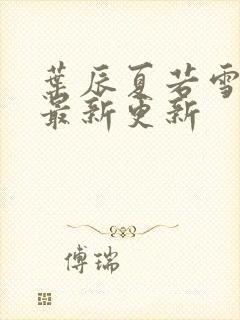 葉辰夏若雪
最新更新
傅瑞